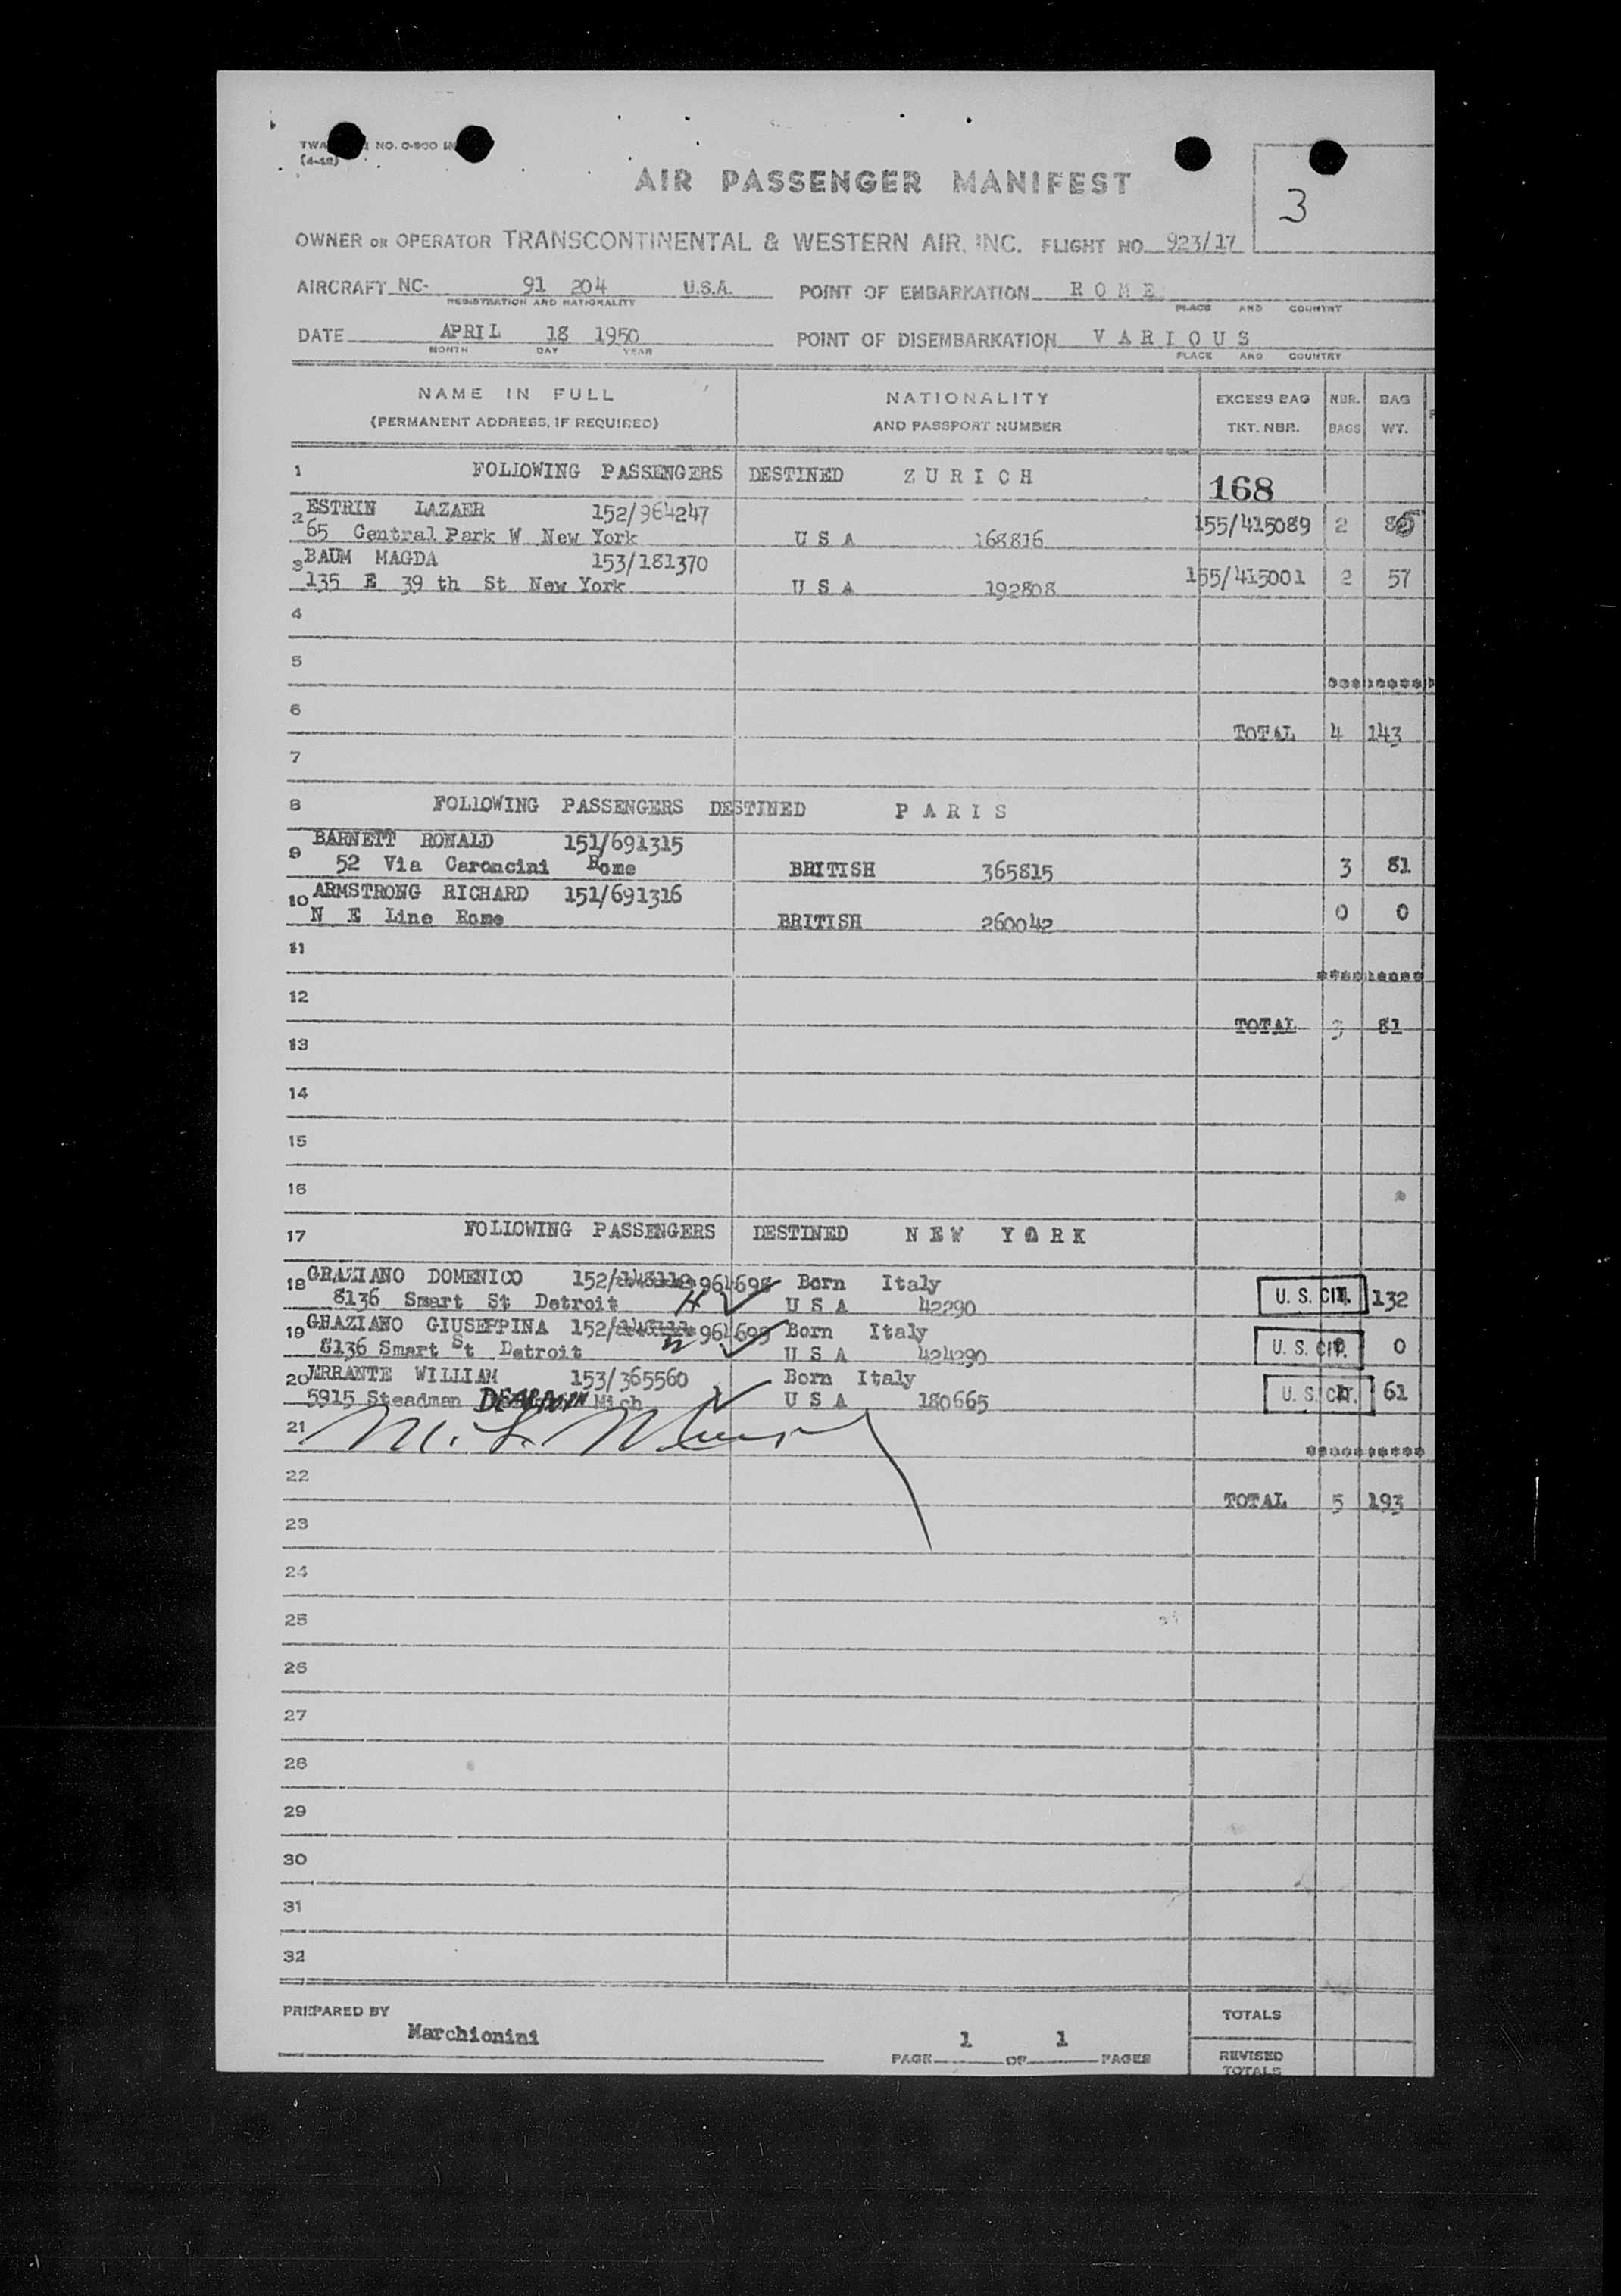 AIR PASSENGER MANIFEST
3
OWNER OR OPERATOR TRANSCONTINENTAL & WESTERN AIR, INC. FLIGHT NO. 923/17
AIRCRAFT NC- 91 204 U.S.A. POINT OF EMBARKATION R O M E
REGISTRATION AND NATIONALITY PLACE AND COUNTRY
DATE APRIL 18 1950 POINT OF DISEMBARKATION V A R I O U S
MONTH DAY YEAR PLACE AND COUNTRY
NAME IN FULL NATIONALITY EXCESS BAG NBR. BAG
(PERMANENT ADDRESS, IF REQUIRED) AND PASSPORT NUMBER TKT. NBR. BAGS WT.
1 FOLLOWING PASSENGERS DESTINED Z U R I C H 168
2 ESTRIN LAZAER 152/964247 155/415089 2
65 Central Park W New York U S A 168816
3 BAUM MAGDA 153/181370 155/415001 2 57
135 E 39 th St New York U S A 192808
4
5
6 TOTAL 4 143
7
8 FOLLOWING PASSENGERS DESTINED P A R I S
9 BARNETT RONALD 151/691315
52 Via Caroncini Rome BRITISH 365815 3 81
10 ARMSTRONG RICHARD 151/691316 0 0
N E Line Rome BRITISH 260042
11
12 TOTAL 3 81
13
14
15
16
17 FOLLOWING PASSENGERS DESTINED N E W Y O R K
18 GRAZIANO DOMENICO 152/ 964698 Born Italy U. S. CIT. 132
8136 Smart St Detroit U S A 42290
19 GRAZIANO GIUSEPPINA 152/ 964699 Born Italy U. S. CIT. 0
8136 Smart St Detroit U S A 424290
20 ERRANTE WILLIAM 153/365560 Born Italy U. S. CIT. 61
5915 Steadman DEARBORN Mich U S A 180665
21
22 TOTAL 5 193
23
24
25
26
27
28
29
30
31
32
PREPARED BY Marchionini TOTALS
PAGE 1 OF 1 PAGES REVISED TOTALS